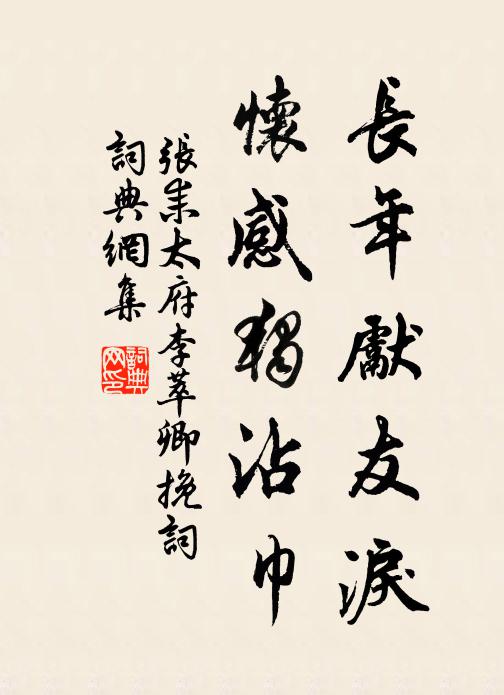 長年獻友淚
懷感獨沾巾
張耒太府李萃卿挽詞
詞典網集
詞典
网印